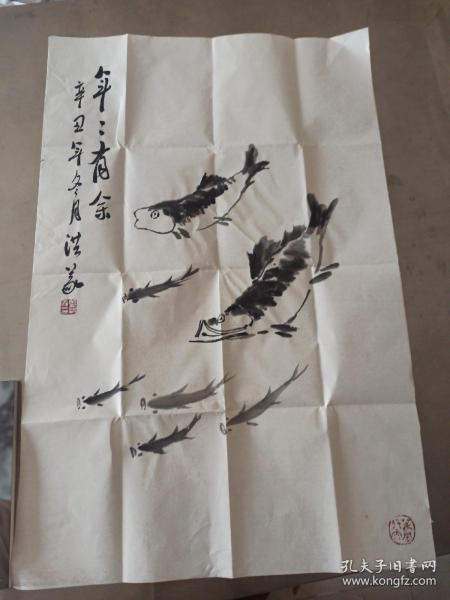 年〻有余
辛丑年冬月洪义
孔夫子旧书网
www.kongfz.com